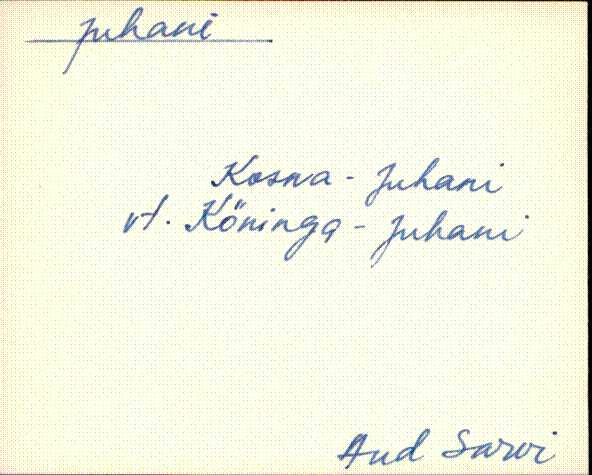 Juhani
Kosna - Juhani
vt. Köninga - Juhani
Aud Sarvi